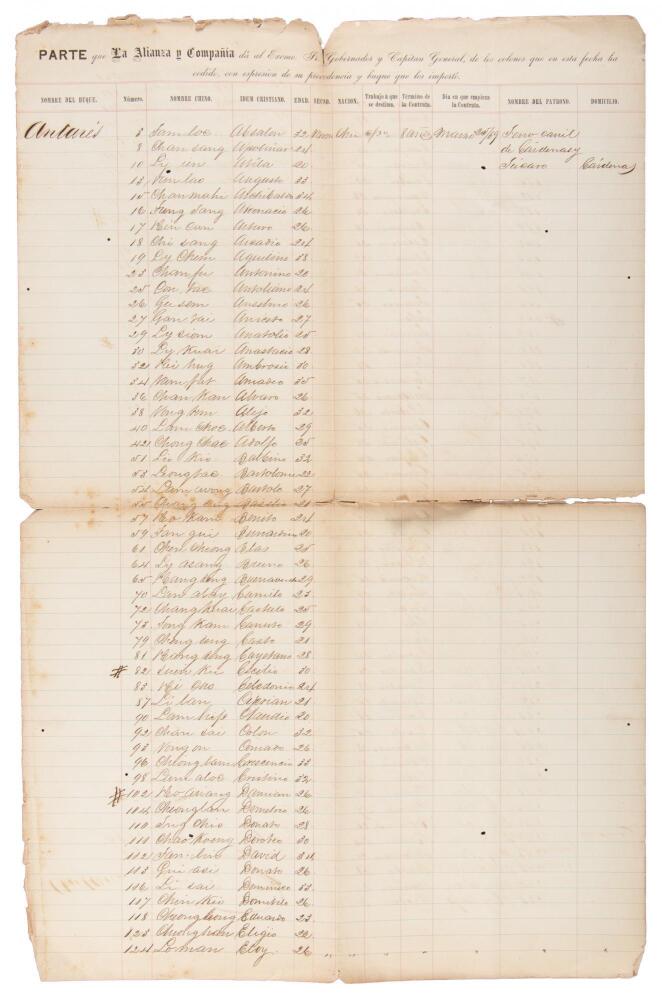 PARTE que La Alianza y Compañía dá al Excmo. Sr. Gobernador y Capitan General, de los colonos que en esta fecha ha
cedido, con espresion de su procedencia y buque que los importó.
NOMBRE DEL BUQUE. Número. NOMBRE CHINO. IDEM CRISTIANO. EDAD. SECSO. NACION. Trabajo á que se destina. Término de la Contrata. Dia en que empieza la Contrata. NOMBRE DEL PATRONO. DOMICILIO.
Antares 3 Sam loc Absalon 32 8 años Marzo Ferro carril
8 Chan sang Apolinar 24 de Cárdenas y
10 Li un Atila 20 Júcaro Cárdenas
13 Kin lao Augusto 33
15 Chan mahi 34
16 Fung sang Atanacio 26
17 Kin can Arturo 26
18 Chi sang Arcadio 24
19 Ly Chim Aquilino 38
23 Chan fu Antonino 20
25 Con tac Antoliano 24
26 Gu sem Anselmo 26
27 Gan tai Aniceto 27
29 Ly sion Anatolio 25
30 Ly Kuai Anastacio 28
32 Hii hug Ambrosio 30
34 Nam fat Amadeo 35
36 Chan Kan Alvaro 26
38 Vong hem Alejo 32
40 Lam choc Alberto 29
42 Chong Chac Adolfo 35
51 Lio Kio Balbino 32
53 Leong tac Bartolome 22
54 Lam wong Bartolo 27
55 Basilio 21
57 Ho Kam Benito 24
59 Fan gui Bernardino 20
61 Chin Cheong Blas 25
64 Ly asang Bruno 26
65 Buenaventa 29
70 Camilo 23
72 Chang Kuai Castulo 25
73 Fong Kam Canuto 29
79 Ching long Casto 21
81 Cayetano 28
# 82 Suen Kii Cecilio 30
83 Hi Cho Celedonio 24
87 Li lan Ciprian 21
90 Lam hap Claudio 20
92 Chan sai Colon 32
93 Vong on Conrado 26
96 Cheong lam Crescencio 33
98 Lam aloc Cristino 32
# 102 Ho aUang Damian 26
104 Cheong lan Demetrio 26
110 Ing Chio Donato 28
111 Chao Koong Doroteo 30
112 Fan hin David 34
113 Gui asi Donato 26
116 Li sai Dominico 33
117 Chin Kii Domitilo 26
118 Cheong hong Eduardo 23
123 Eligio 22
124 Lo man Eloy 26